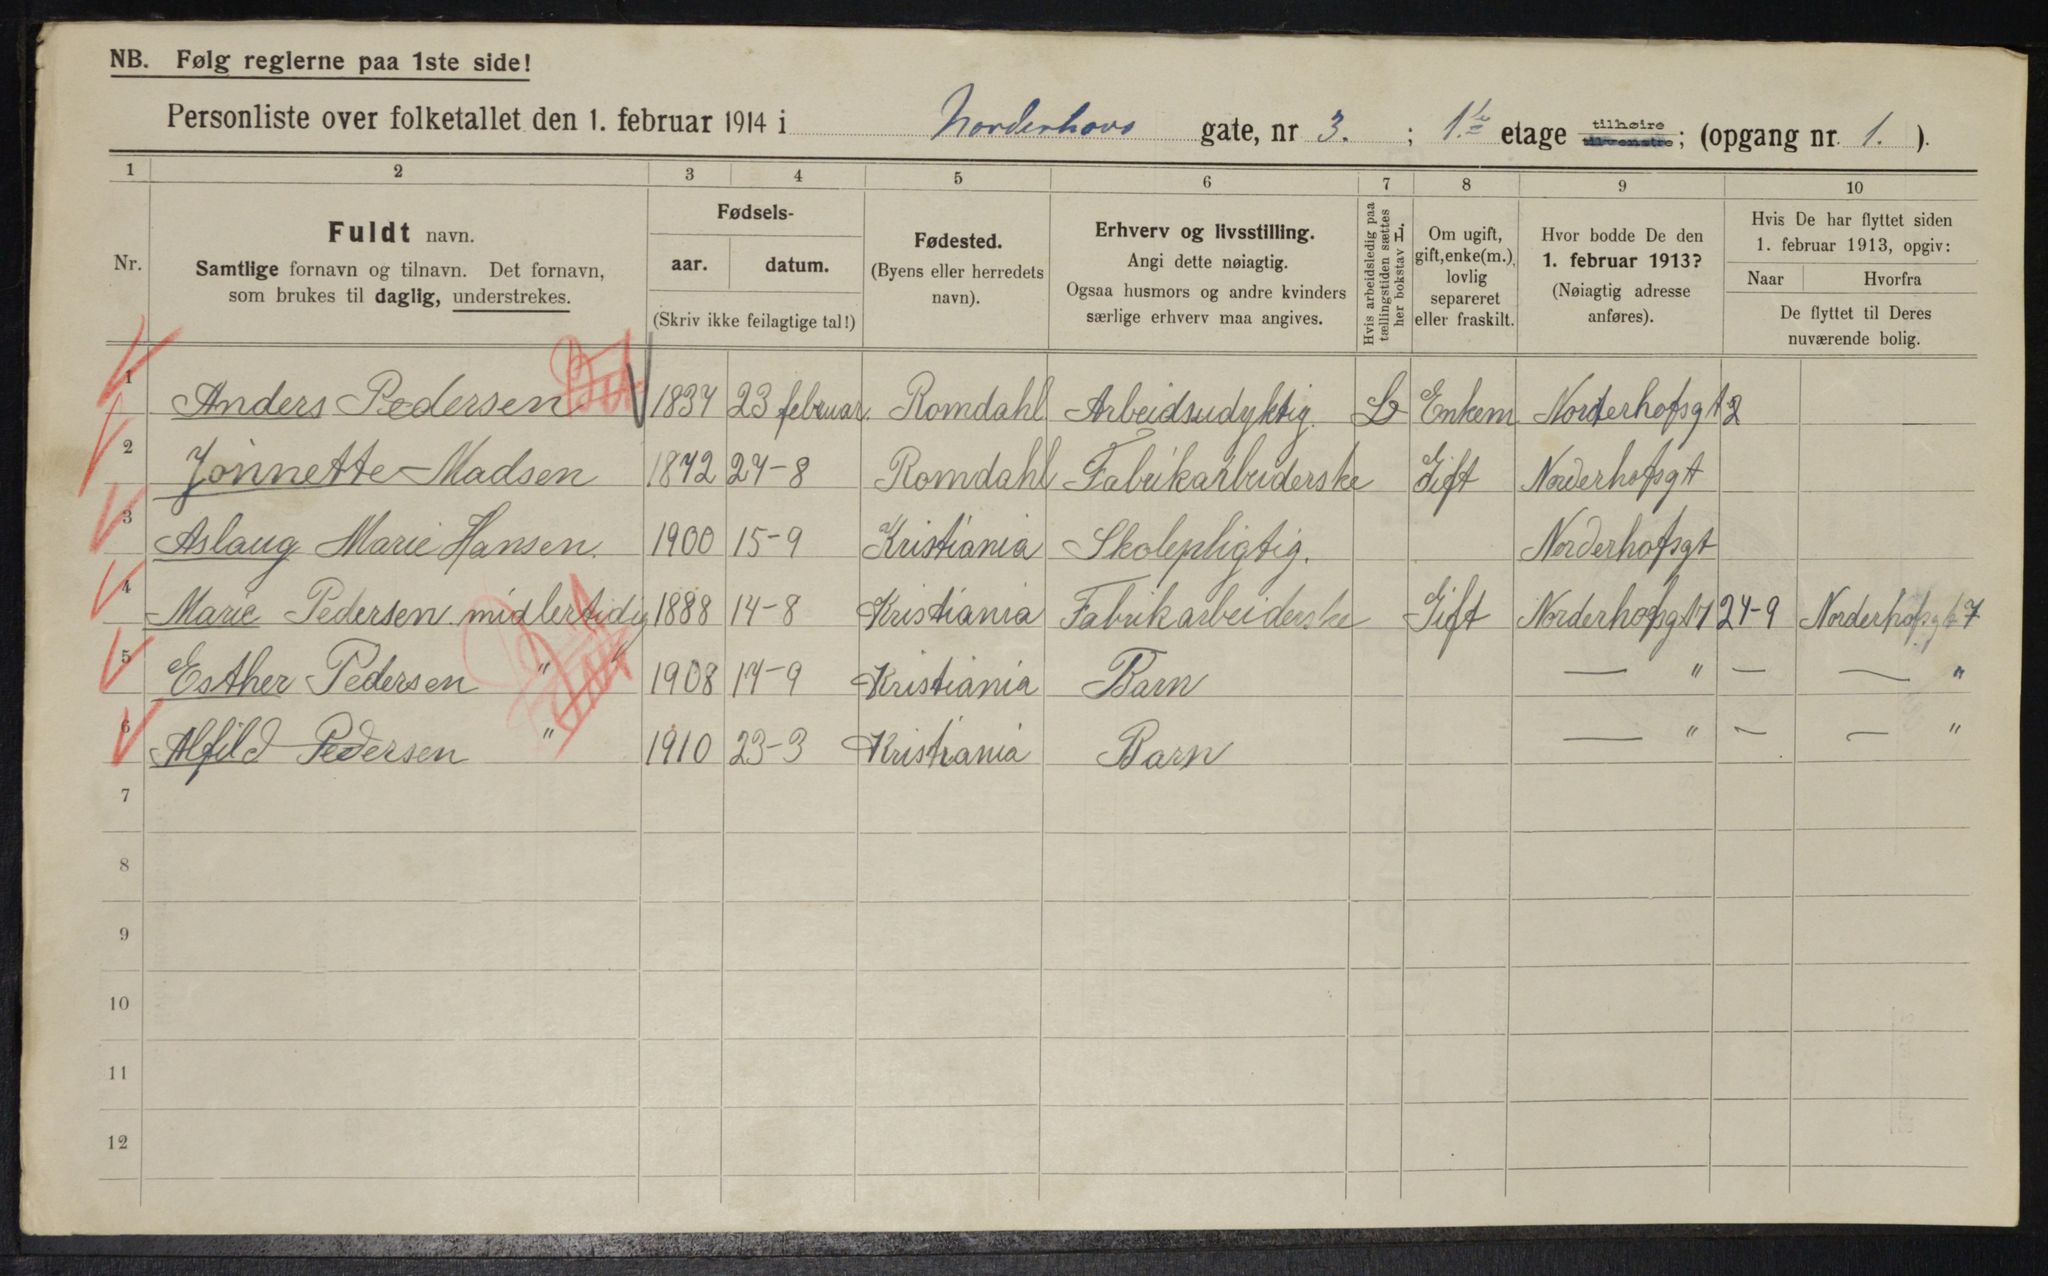 NB. Følg reglerne paa 1ste side!
Personliste over folketallet den 1. februar 1914 i Norderhovs gate, nr 3. ; 1.ste etage tilhøire tilvenstre; (opgang nr. 1. ).
1 2 3 4 5 6 7 8 9 10
Nr.
Fuldt navn.
Samtlige fornavn og tilnavn. Det fornavn,
som brukes til daglig, understrekes.
Fødsels-
aar. datum.
(Skriv ikke feilagtige tal!)
Fødested.
(Byens eller herredets
navn).
Erhverv og livsstilling.
Angi dette nøiagtig.
Ogsaa husmors og andre kvinders
særlige erhverv maa angives.
Hvis arbeidsledig paa
tællingstiden sættes
her bokstav L.
Om ugift,
gift, enke(m.),
lovlig
separeret
eller fraskilt.
Hvor bodde De den
1. februar 1913?
(Nøiagtig adresse
anføres).
Hvis De har flyttet siden
1. februar 1913, opgiv:
Naar Hvorfra
De flyttet til Deres
nuværende bolig.
1 Anders Pedersen 1837 23 februar. Romdahl Arbeidsudyktig. L Enkem Norderhofsgt 2
2 Jönnette Madsen 1872 27-8 Romdahl Fabrikarbeiderske Gift Norderhofsgt
3 Aslaug Marie Hansen. 1900 15-9 Kristiania Skolepligtig. Norderhofsgt
4 Marie Pedersen midlertidig 1888 14-8 Kristiania Fabrikarbeiderske Gift Norderhofsgt 7 24-9 Norderhofsgt 7
5 Esther Pedersen " " 1908 17-9 Kristiania Barn — " — — "
6 Alfild Pedersen " 1910 23-3 Kristiania Barn — " — — "
7
8
9
10
11
12